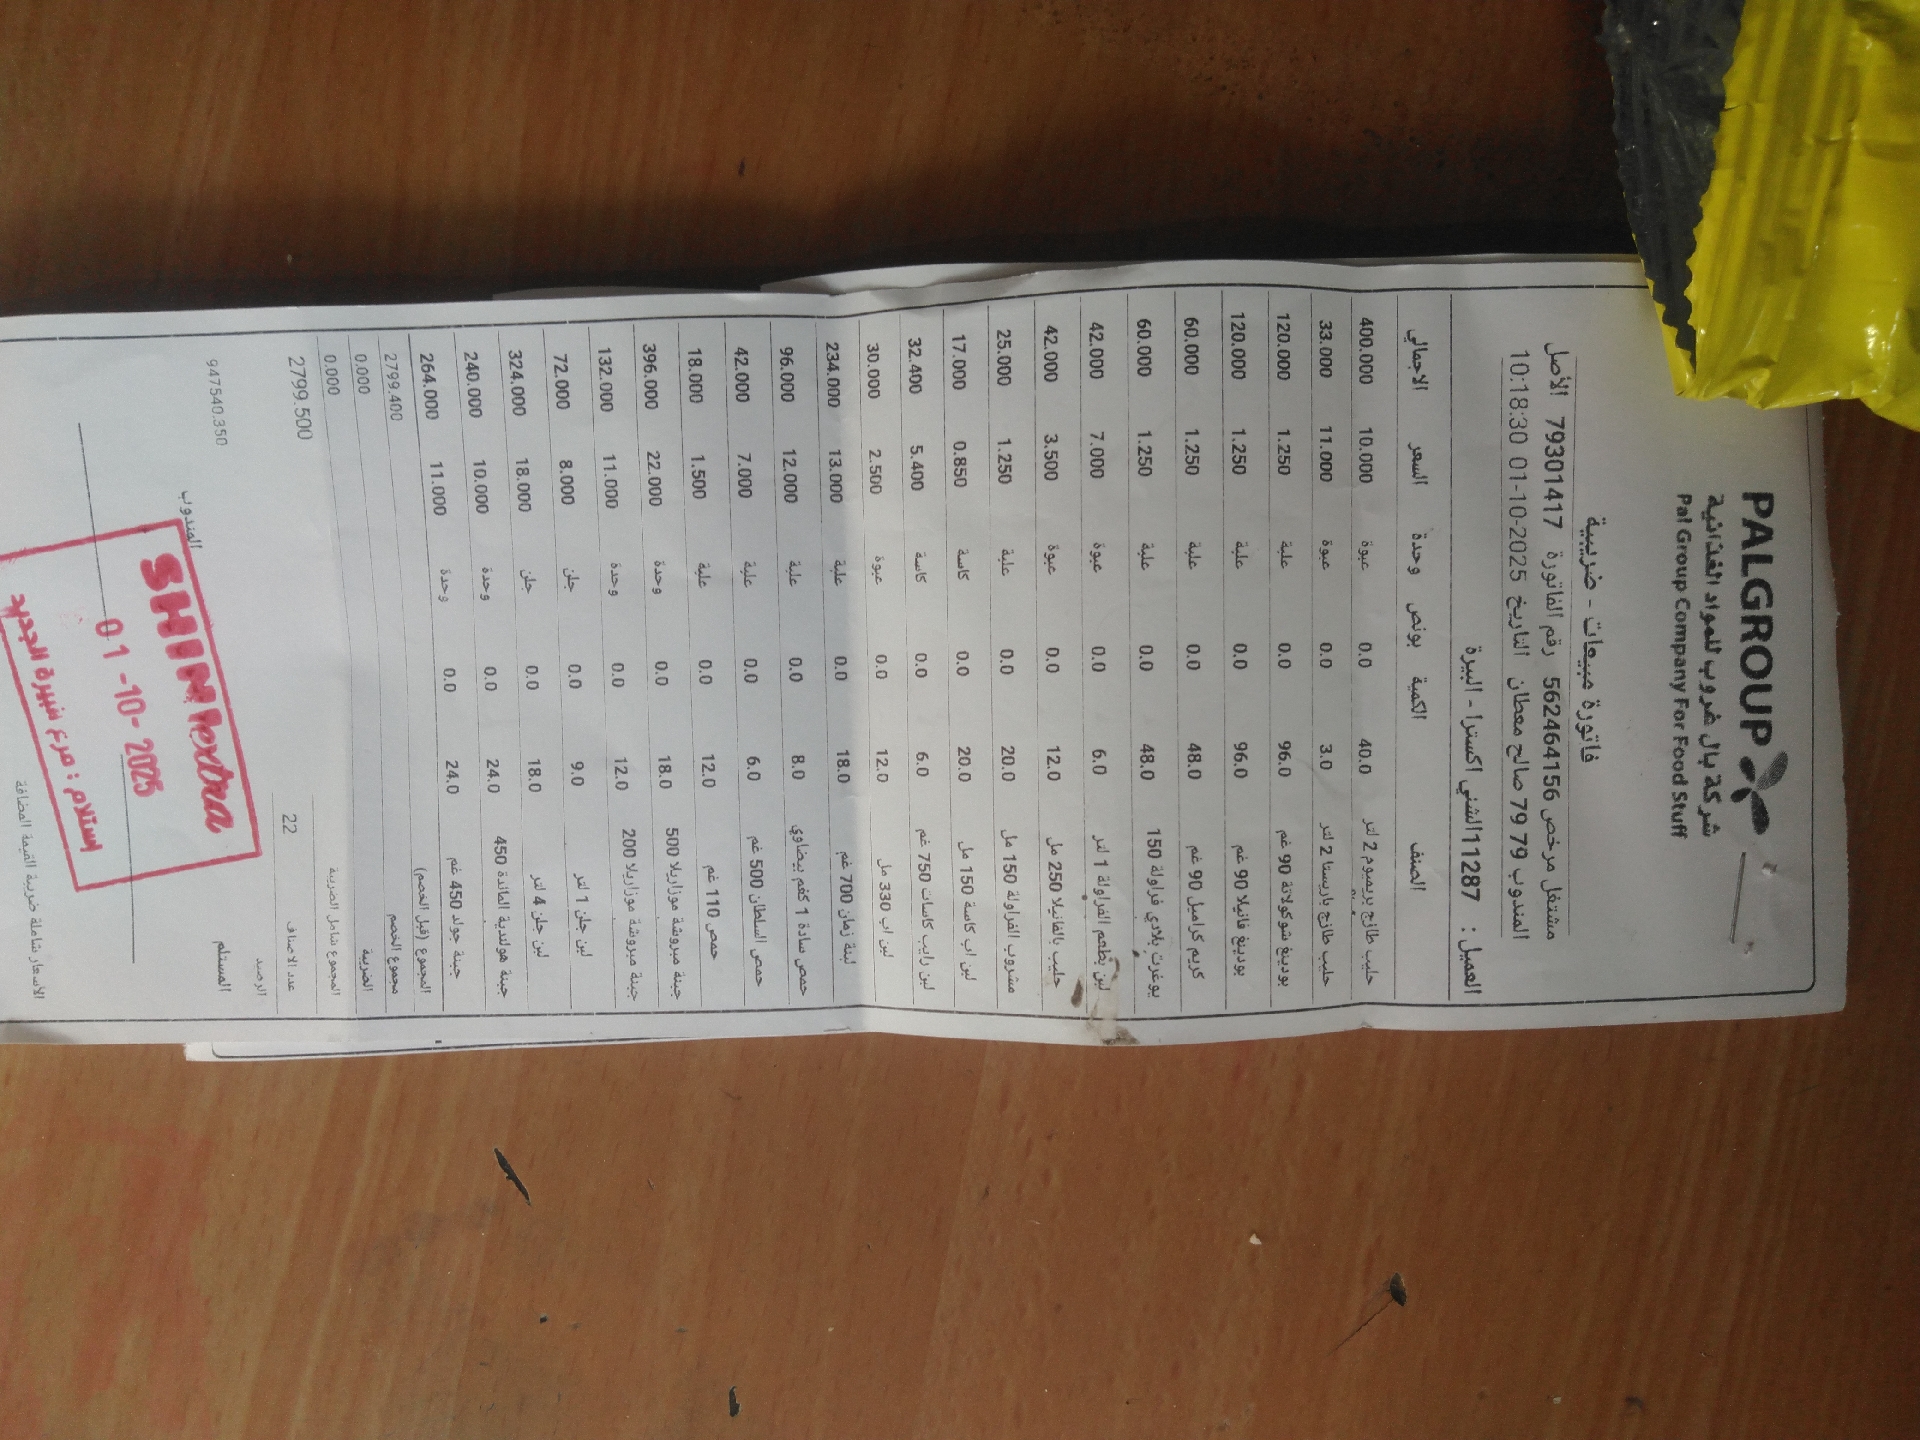 PALGROUP
شركة بال غروب للمواد الغذائية
Pal Group Company For Food Stuff
فاتورة مبيعات - ضريبية
مشتغل مرخص 562464156 رقم الفاتورة 79301417 الأصل
المندوب 79 79 صالح معطان التاريخ 01-10-2025 10:18:30
العميل : 11287الشني اكسترا - البيرة
الصنف الكمية بونص وحدة السعر الاجمالي
حليب طازج بريميوم 2 لتر 40.0 0.0 عبوة 10.000 400.000
حليب طازج باريستا 2 لتر 3.0 0.0 عبوة 11.000 33.000
بودينغ شوكولاتة 90 غم 96.0 0.0 علبة 1.250 120.000
بودينغ فانيلا 90 غم 96.0 0.0 علبة 1.250 120.000
كريم كراميل 90 غم 48.0 0.0 علبة 1.250 60.000
يوغرت بلادي فراولة 150 48.0 0.0 علبة 1.250 60.000
لبن بطعم الفراولة 1 لتر 6.0 0.0 عبوة 7.000 42.000
حليب بالفانيلا 250 مل 12.0 0.0 عبوة 3.500 42.000
مشروب الفراولة 150 مل 20.0 0.0 علبة 1.250 25.000
لبن اب كاسة 150 مل 20.0 0.0 كاسة 0.850 17.000
لبن رايب كاسات 750 غم 6.0 0.0 كاسة 5.400 32.400
لبن اب 330 مل 12.0 0.0 عبوة 2.500 30.000
لبنة زمان 700 غم 18.0 0.0 علبة 13.000 234.000
حمص سادة 1 كغم بيضاوي 8.0 0.0 علبة 12.000 96.000
حمص السلطان 500 غم 6.0 0.0 علبة 7.000 42.000
حمص 110 غم 12.0 0.0 علبة 1.500 18.000
جبنة مبروشة موزاريلا 500 18.0 0.0 وحدة 22.000 396.000
جبنة مبروشة موزاريلا 200 12.0 0.0 وحدة 11.000 132.000
لبن جلن 1 لتر 9.0 0.0 جلن 8.000 72.000
لبن جلن 4 لتر 18.0 0.0 جلن 18.000 324.000
جبنة هولندية المائدة 450 24.0 0.0 وحدة 10.000 240.000
جبنة جولد 450 غم 24.0 0.0 وحدة 11.000 264.000
المجموع (قبل الخصم) 2799.400
مجموع الخصم 0.000
الضريبة 0.000
المجموع شامل الضريبة 2799.500
عدد الاصناف 22
الرصيد 947540.350
المستلم المندوب
SHINI extra
01-10-2025
استلام : فرع البيرة الجديد
الاسعار شاملة ضريبة القيمة المضافة